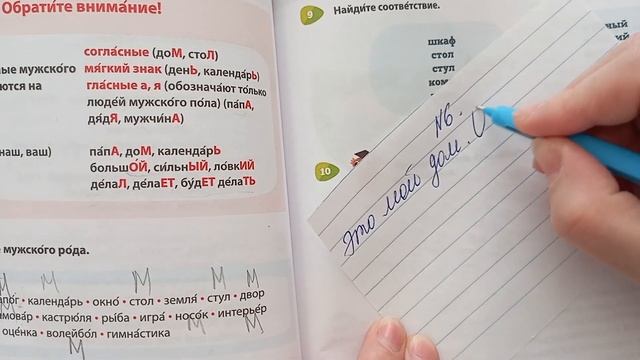 Обрати́те внима́ние!
согла́сные (доМ, стоЛ)
ные мужско́го мя́гкий знак (денЬ, календа́рЬ)
ются на гла́сные а, я (обознача́ют то́лько
люде́й мужско́го по́ла) (па́пА,
дя́дЯ, мужчи́нА)
наш, ваш) па́пА, доМ, календа́рЬ
большО́Й, си́льнЫЙ, ло́вкИЙ
де́лаЛ, де́лаЕТ, бу́дЕТ де́лаТЬ
е мужско́го ро́да.
М М М М М
апо́г • календа́рь • окно́ • стол • земля́ • стул • двор
мова́р • кастрю́ля • ры́ба • игра́ • носо́к • интерье́р
М М
оце́нка • волейбо́л • гимна́стика
М
9 Найди́те соотве́тствие.
шкаф
стол
стул
ком
ный
ий
10
№6.
Это мой дом.